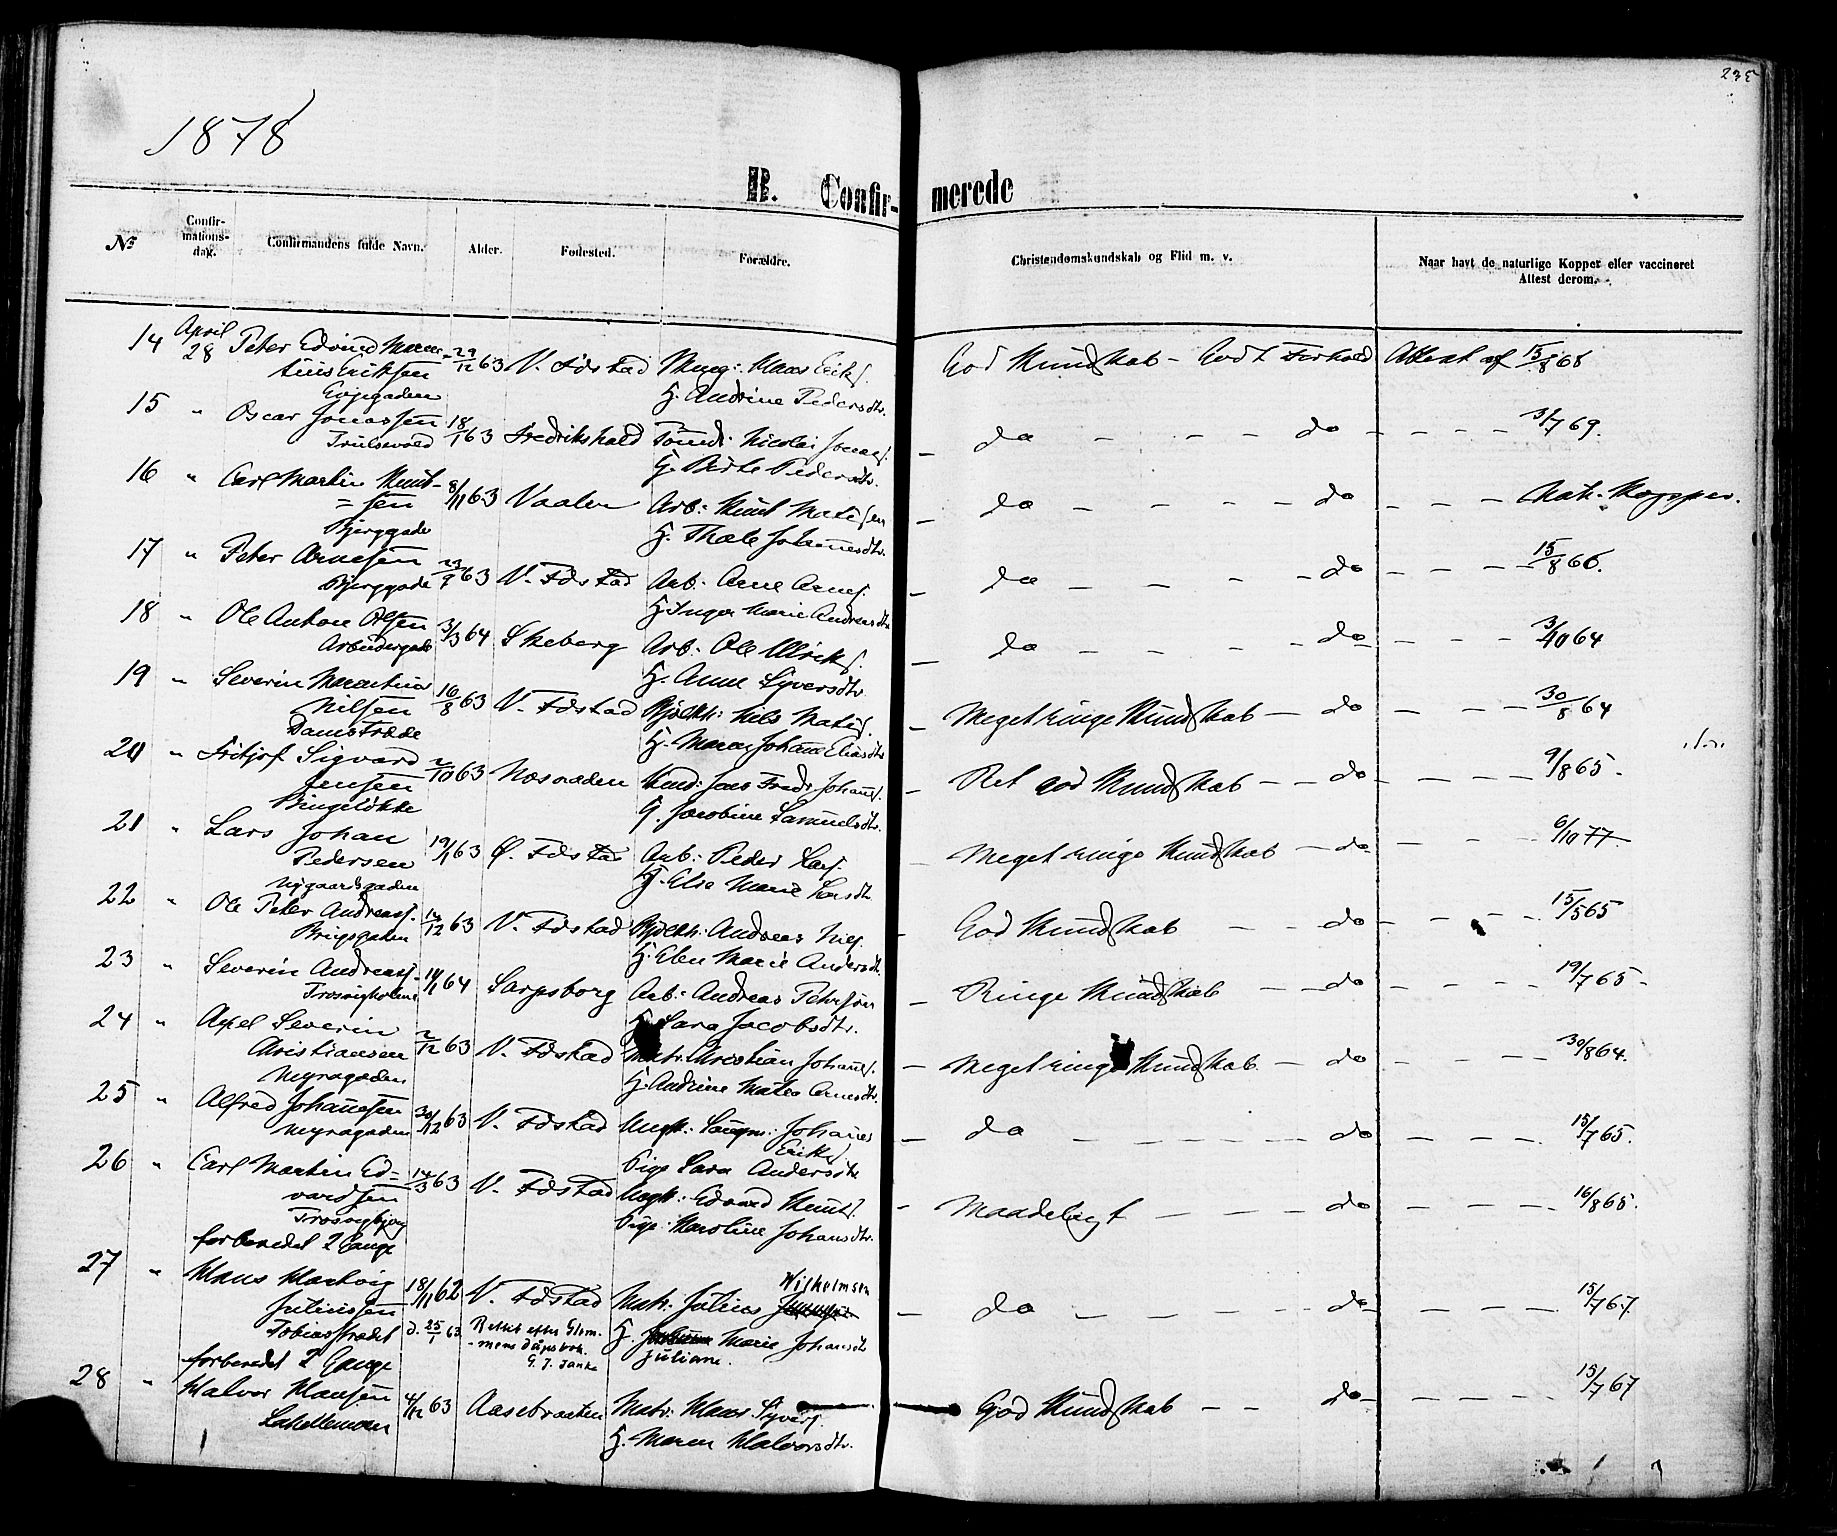 235
1878
B. Confir- merede
№
Confir-
mations-
dag.
Confirmandens fulde Navn.
Alder.
Fødested.
Forældre.
Christendomskundskab og Flid m. v.
Naar havt de naturlige Kopper eller vaccineret
Attest derom.
14 April 28 Peter Edvind Maren- 29/12 63 V. Fdstad Hans Eriks. God Kundskab - Godt Forhold Attest af 15/8 68
tinis Eriksen
Enggaden H. Andrine Pedersdtr.
15 " Oscar Jonassen 18/1 63 Fredrikshald Tømdr. Nicolai Jonas. - do - - - do - - - - 3/7 69.
Trulsevold H. Berte Pedersdtr.
16 " Carl Martin Knut- 8/11 63 Vaaler Arb: Knut Mats sen - do - - - - do - - - Nat. Kopper.
= sen
Bjerggade H. Thale Johannesdtr.
17 " Peter Arnesen 63 V. Fdstad Arb: Arne Arnes. - do - - - - do - - - - 15/8 66.
Bjerggade H. Inger Marie Andreasdtr
18 " Ole Anton Olsen 3/3 64 Skeberg Arb: Ole Ulriks. - do - - - - do - - - 3/10 64
Arbeidergade H. Anne Syversdtr.
19 " Severin Martinus 16/8 63 V. Fdstad Niels Mats. - Meget ringe Kundskab - do - - - - 30/8 64
Nilsen
Damstræde H. Maren Johanne Eliasdtr
20 " Fritjof Sigvard 2/10 63 Næsvaden Fredr Johans. - Ret god Kundskab - - do - - - - 9/8 65.
Jensen
Bingeløkke G. Jacobine Samuelsdtr.
21 " Lars Johan 19/1 63 Ø. Fdstad Arb: Peder Lars. - Meget ringe Kundskab - do - - - - 6/10 77.
Pedersen
Nygaardsgaden H. Elie Marie Larsdtr
22 " Ole Peter Andreass. 14/12 63 V. Fdstad Andreas Nils. - God Kundskab - - do - - - - 15/5 65
Brugsgaden H. Elen Marie Andersdtr.
23 " Severin Andreass. 14/1 64 Sarpsborg Arb: Andreas Petersen - Ringe Kundskab - - do - - - - 19/7 65 -
Trosvigholmen H. Lara Jacobsdtr.
24 " Axel Severin 2/12 63 V. Fdstad Matr. Kristian Johans. - Meget ringe Kundskab - do - - - - 30/8 64.
Christiansen
Myragaden H. Andrine Matea Arnesdtr.
25 " Alfred Johannesen 30/12 63 V. Fdstad Ungk: Johannes - do - - - - do - - - - 15/7 65.
Myragaden Eriks.
Pige Sara Andersdtr
26 " Carl Martin Ed- 14/3 63 V. Fdstad Ungk: Edvard Knuts. - Maadeligt - - - do - - - - 16/8 65.
vardsen
Trosvigbjerg Pige: Karoline Johansdtr.
forberedet 2 Gange
27 " Klaus Hartvig 18/11 62 V. Fdstad Matr. Julius Wilhelmsen - do - - - - do - - - - 15/7 67.
Juliussen
Tobiasstrædet d. 25/1 63 Rettet efter Glem-
mens dåpsbok.
G. J. Janke
H. Marie Johansdtr
Juliane.
forberedet 2 Gange
28 " Halvor Hansen 4/12 63 Aasebraaten Matr. Hans Syvers. God Kundskab - - do - - - - 15/7 67
Lahellemoen H. Maren Halvorsdtr.